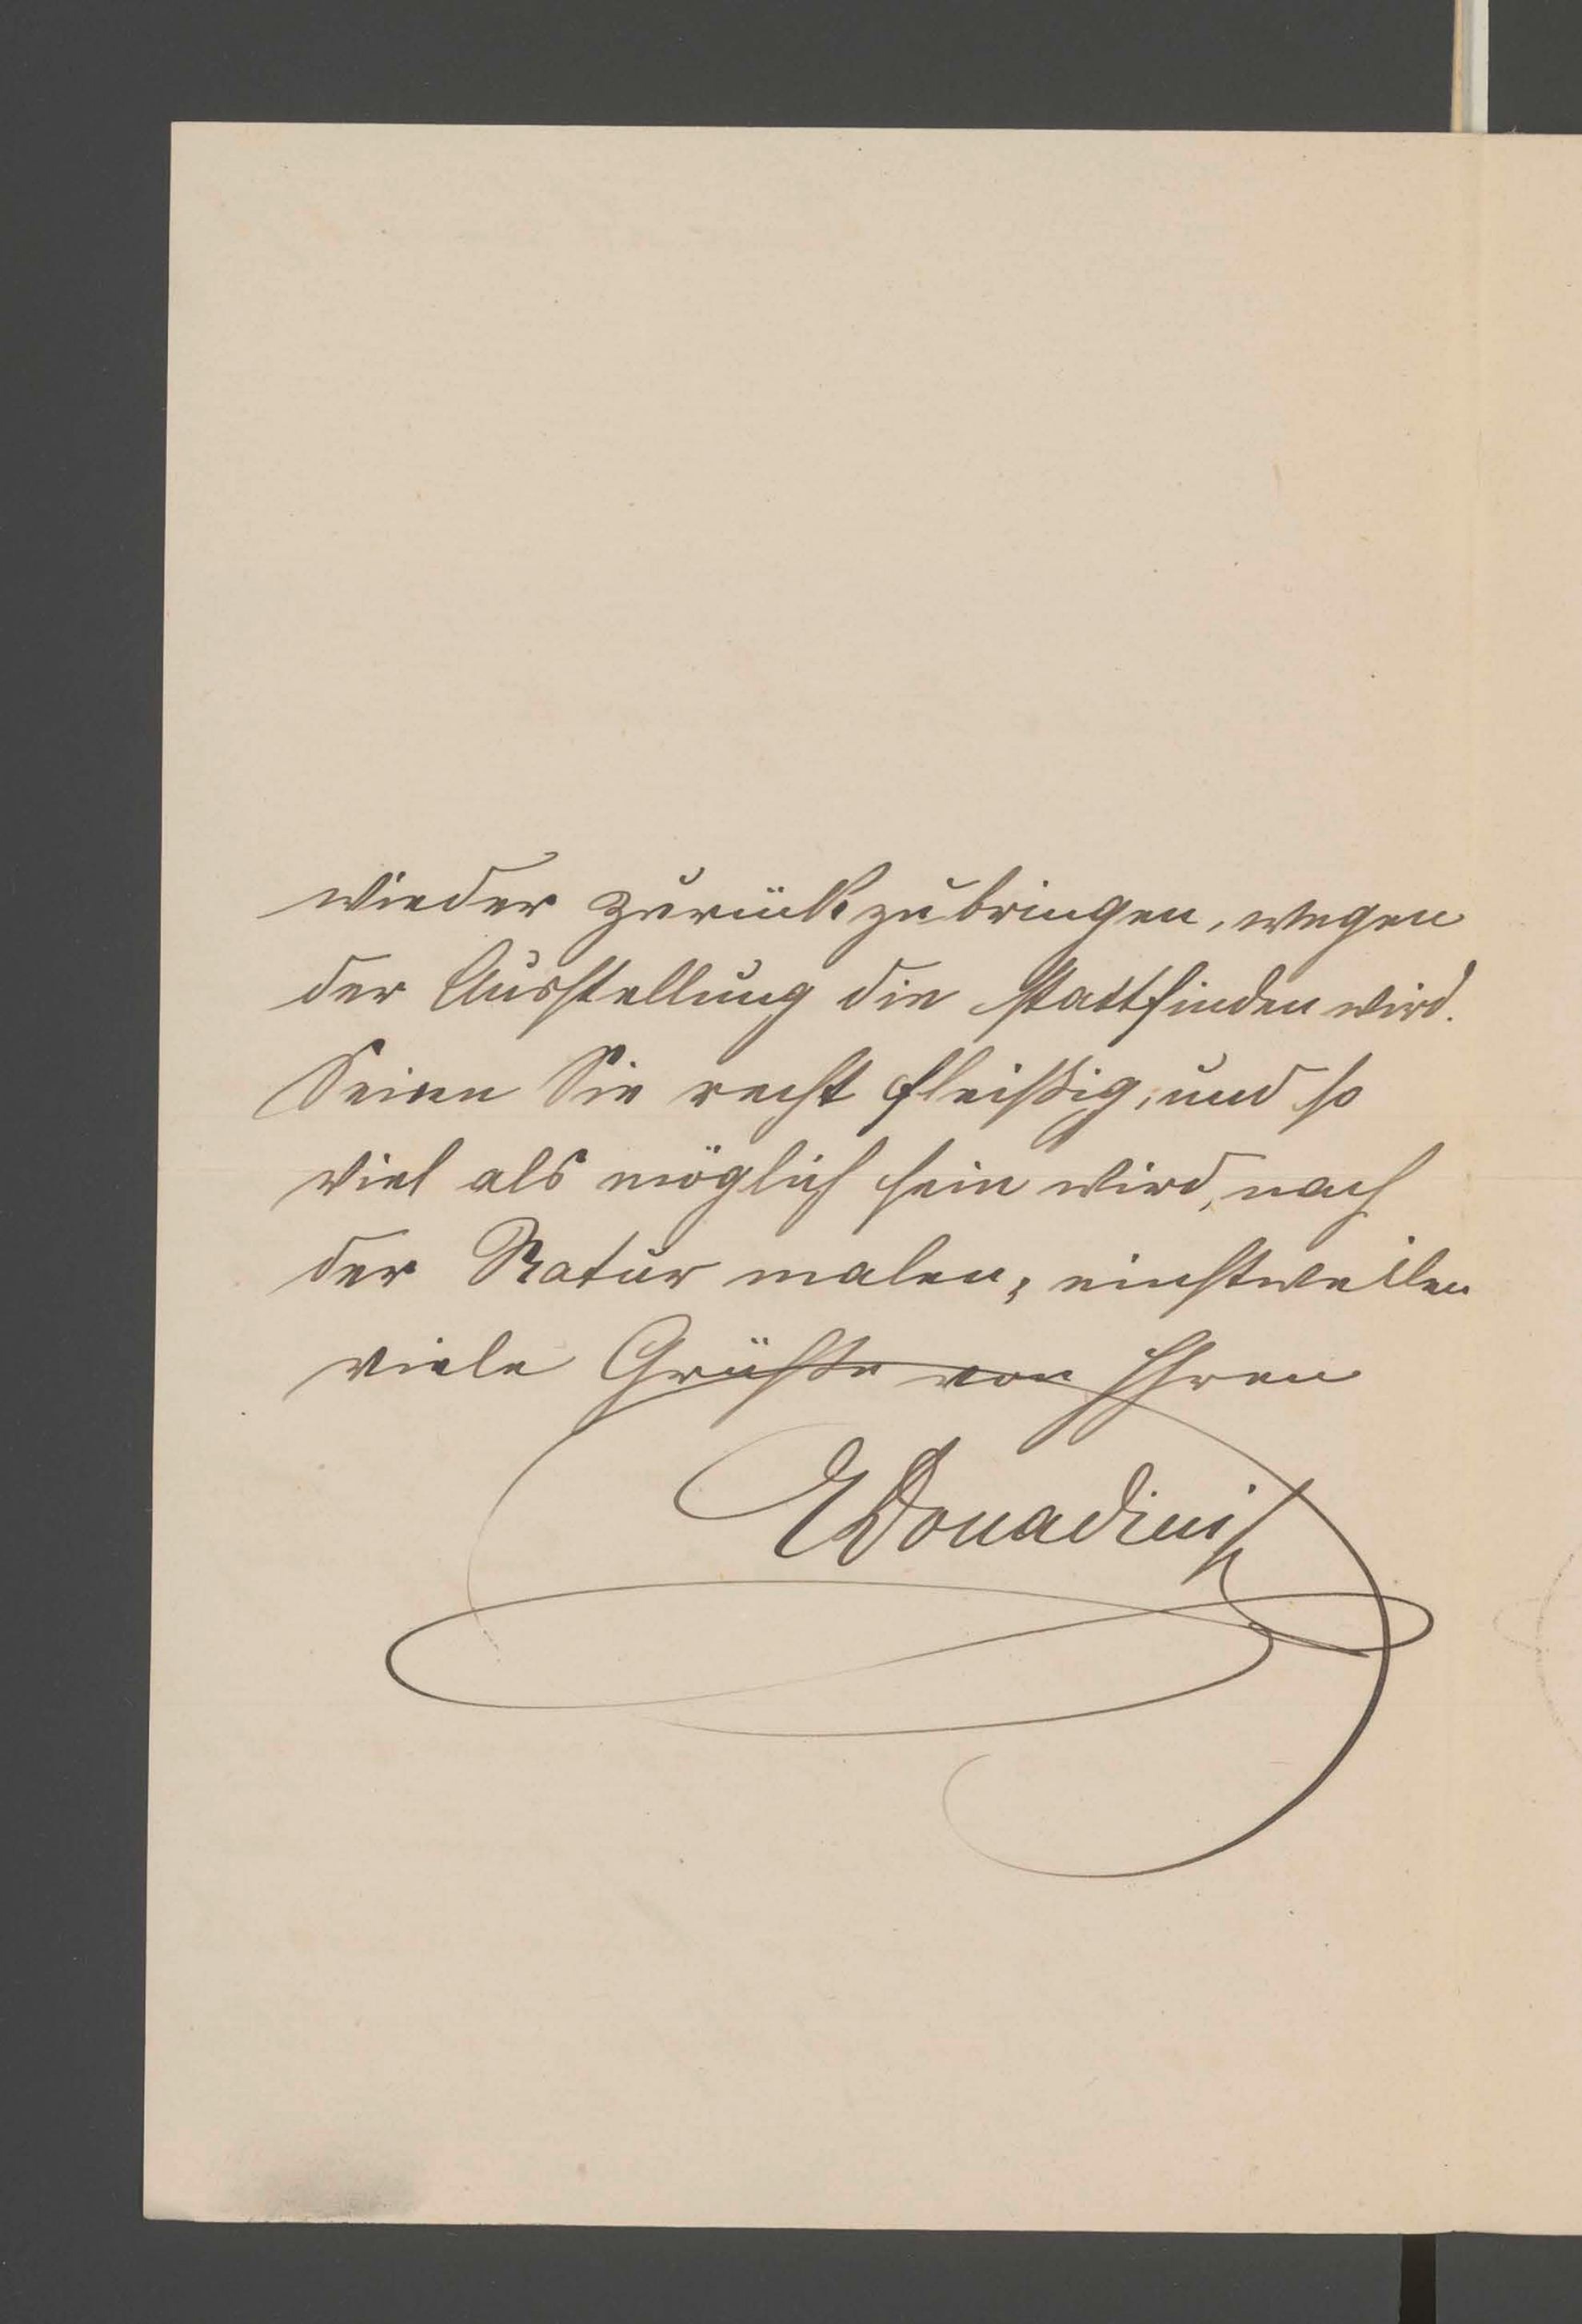 wieder zurück zu bringen, wegen
der Ausstellung die stattfinden wird.
Seien Sie recht fleißig, und so
viel als möglich sein wird, nach
der Natur malen, einstweilen
viele Grüße von Ihren
EDonadini